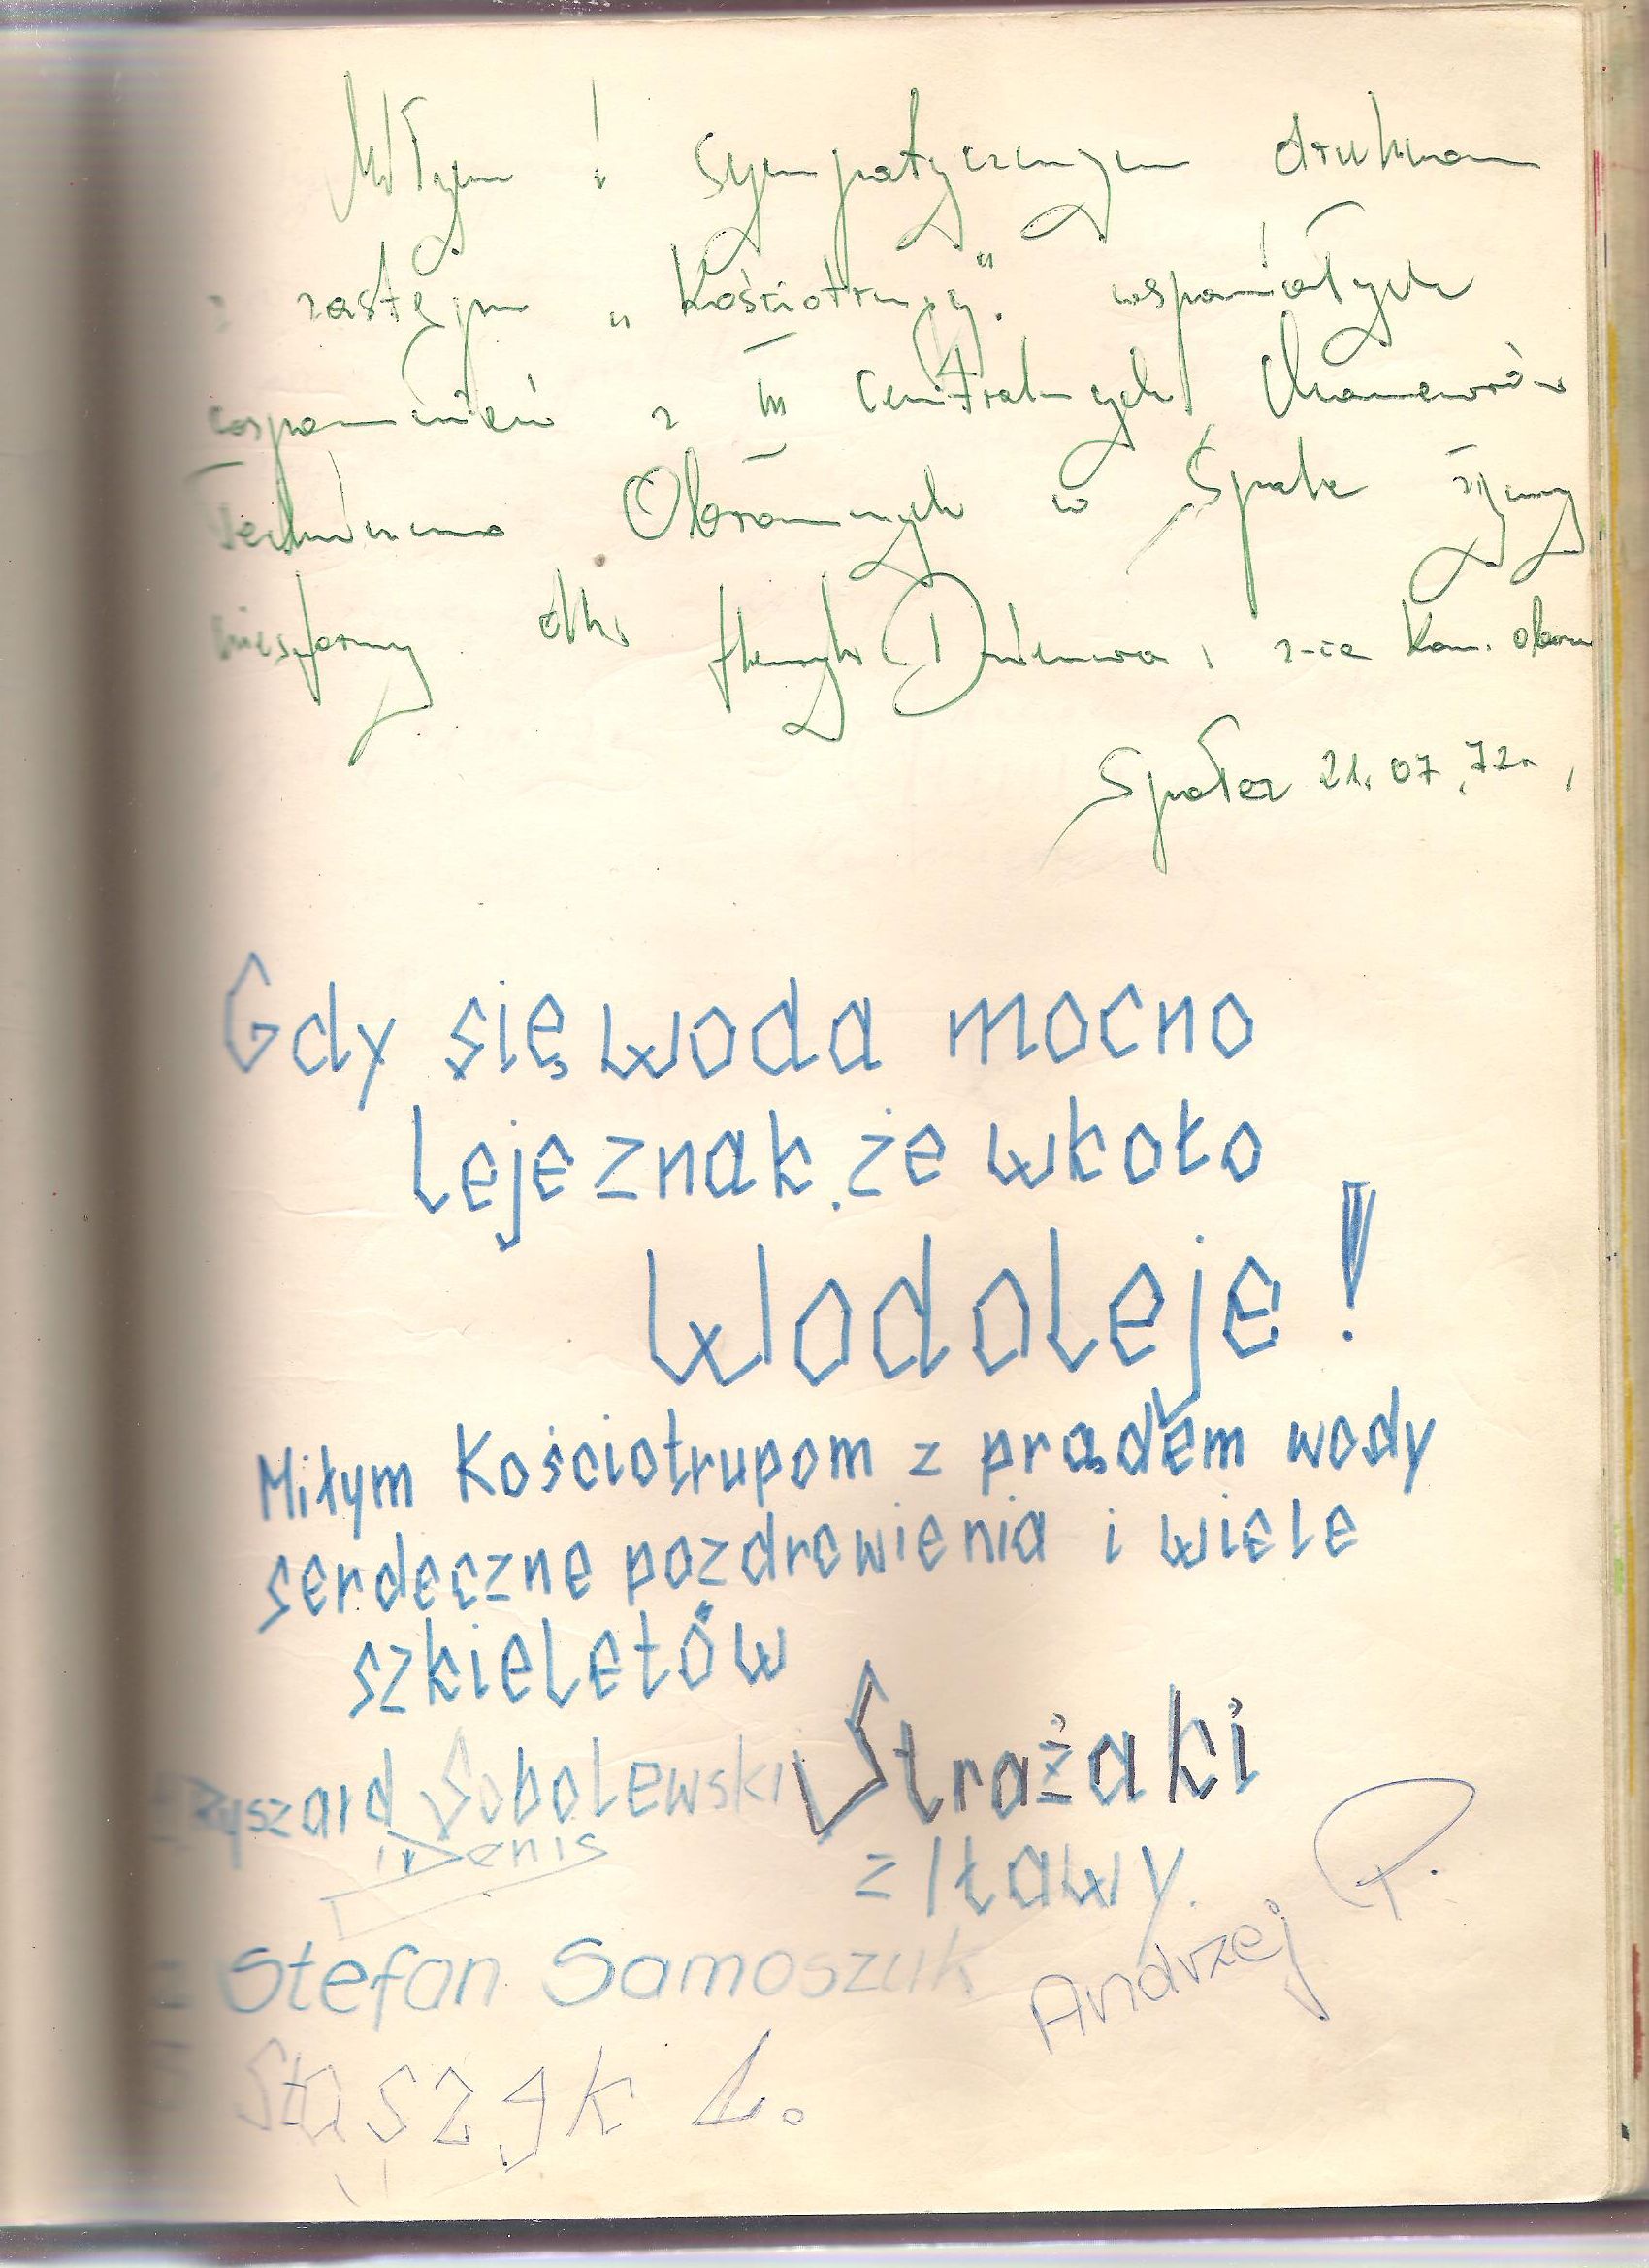 Miłym i sympatycznym druhnom
z zastępu „Kościotrupy" wspaniałych
wspomnień z III Centralnych Manewrów
Techniczno Obronnych w Spale życzy
dh. Henryk z-ca Kom. obozu
Spała 21.07.72r.
Gdy się woda mocno
leje znak, że wkoło
Wodoleje!
Miłym Kościotrupom z prądem wody
serdeczne pozdrowienia i wiele
szkieletów
Strażaki
Ryszard Sobolewski
Denis
z Iławy.
Andrzej P.
Stefan Samoszuk
Staszek L.